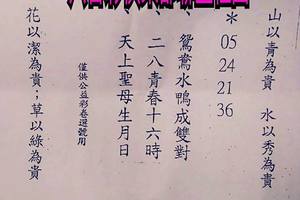 山以青為貴 水以秀為貴
* 05 24 21 36
鴛鴦水鴨成雙對
二八青春十六時
天上聖母生月日
僅供公益彩卷選號用
花以潔為貴；草以綠為貴